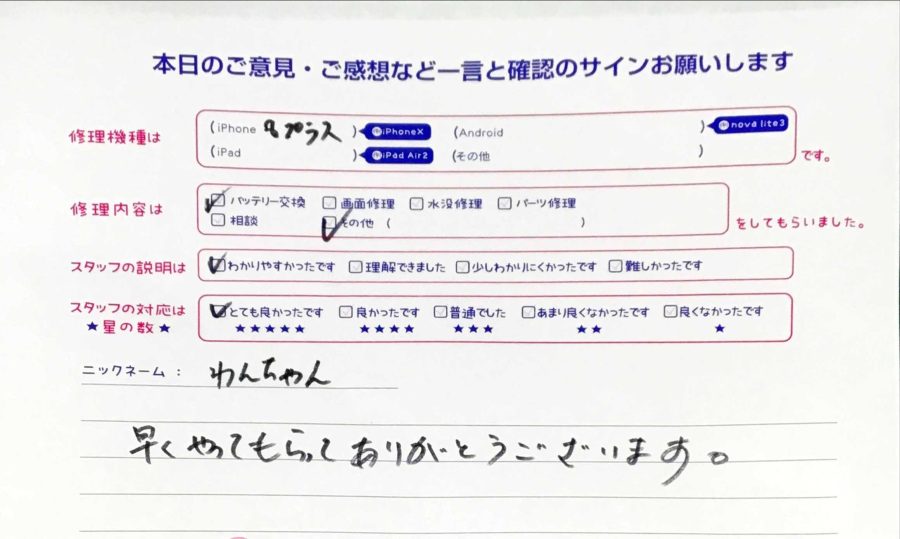 本日のご意見・ご感想など一言と確認のサインお願いします
修理機種は (iPhone 8プラス ) iPhoneX (Android ) nova lite3
(iPad ) iPad Air2 (その他 ) です。
修理内容は バッテリー交換 画面修理 水没修理 パーツ修理
相談 その他 ( ) をしてもらいました。
スタッフの説明は わかりやすかったです 理解できました 少しわかりにくかったです 難しかったです
スタッフの対応は とても良かったです 良かったです 普通でした あまり良くなかったです 良くなかったです
★星の数★ ★★★★★ ★★★★ ★★★ ★★ ★
ニックネーム : わんちゃん
早くやってもらってありがとうございます。